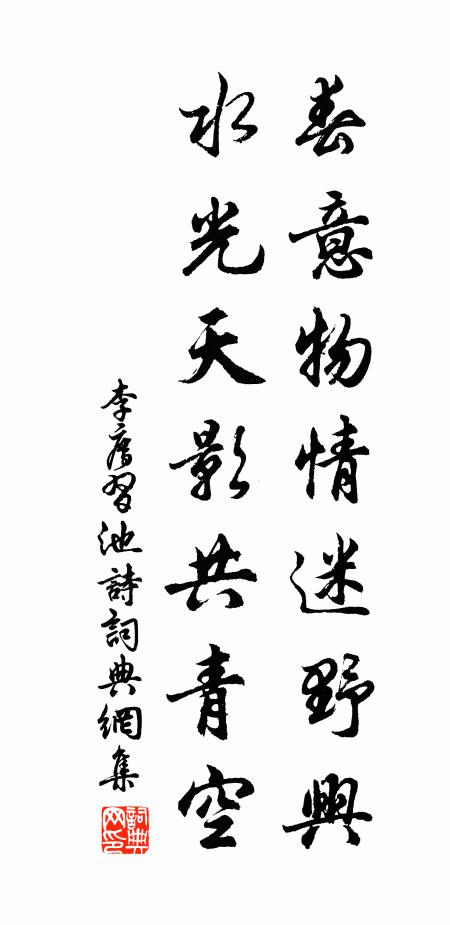 春意物情迷野興
水光天影共青空
李廌習池詩詞典網集
詞典網印